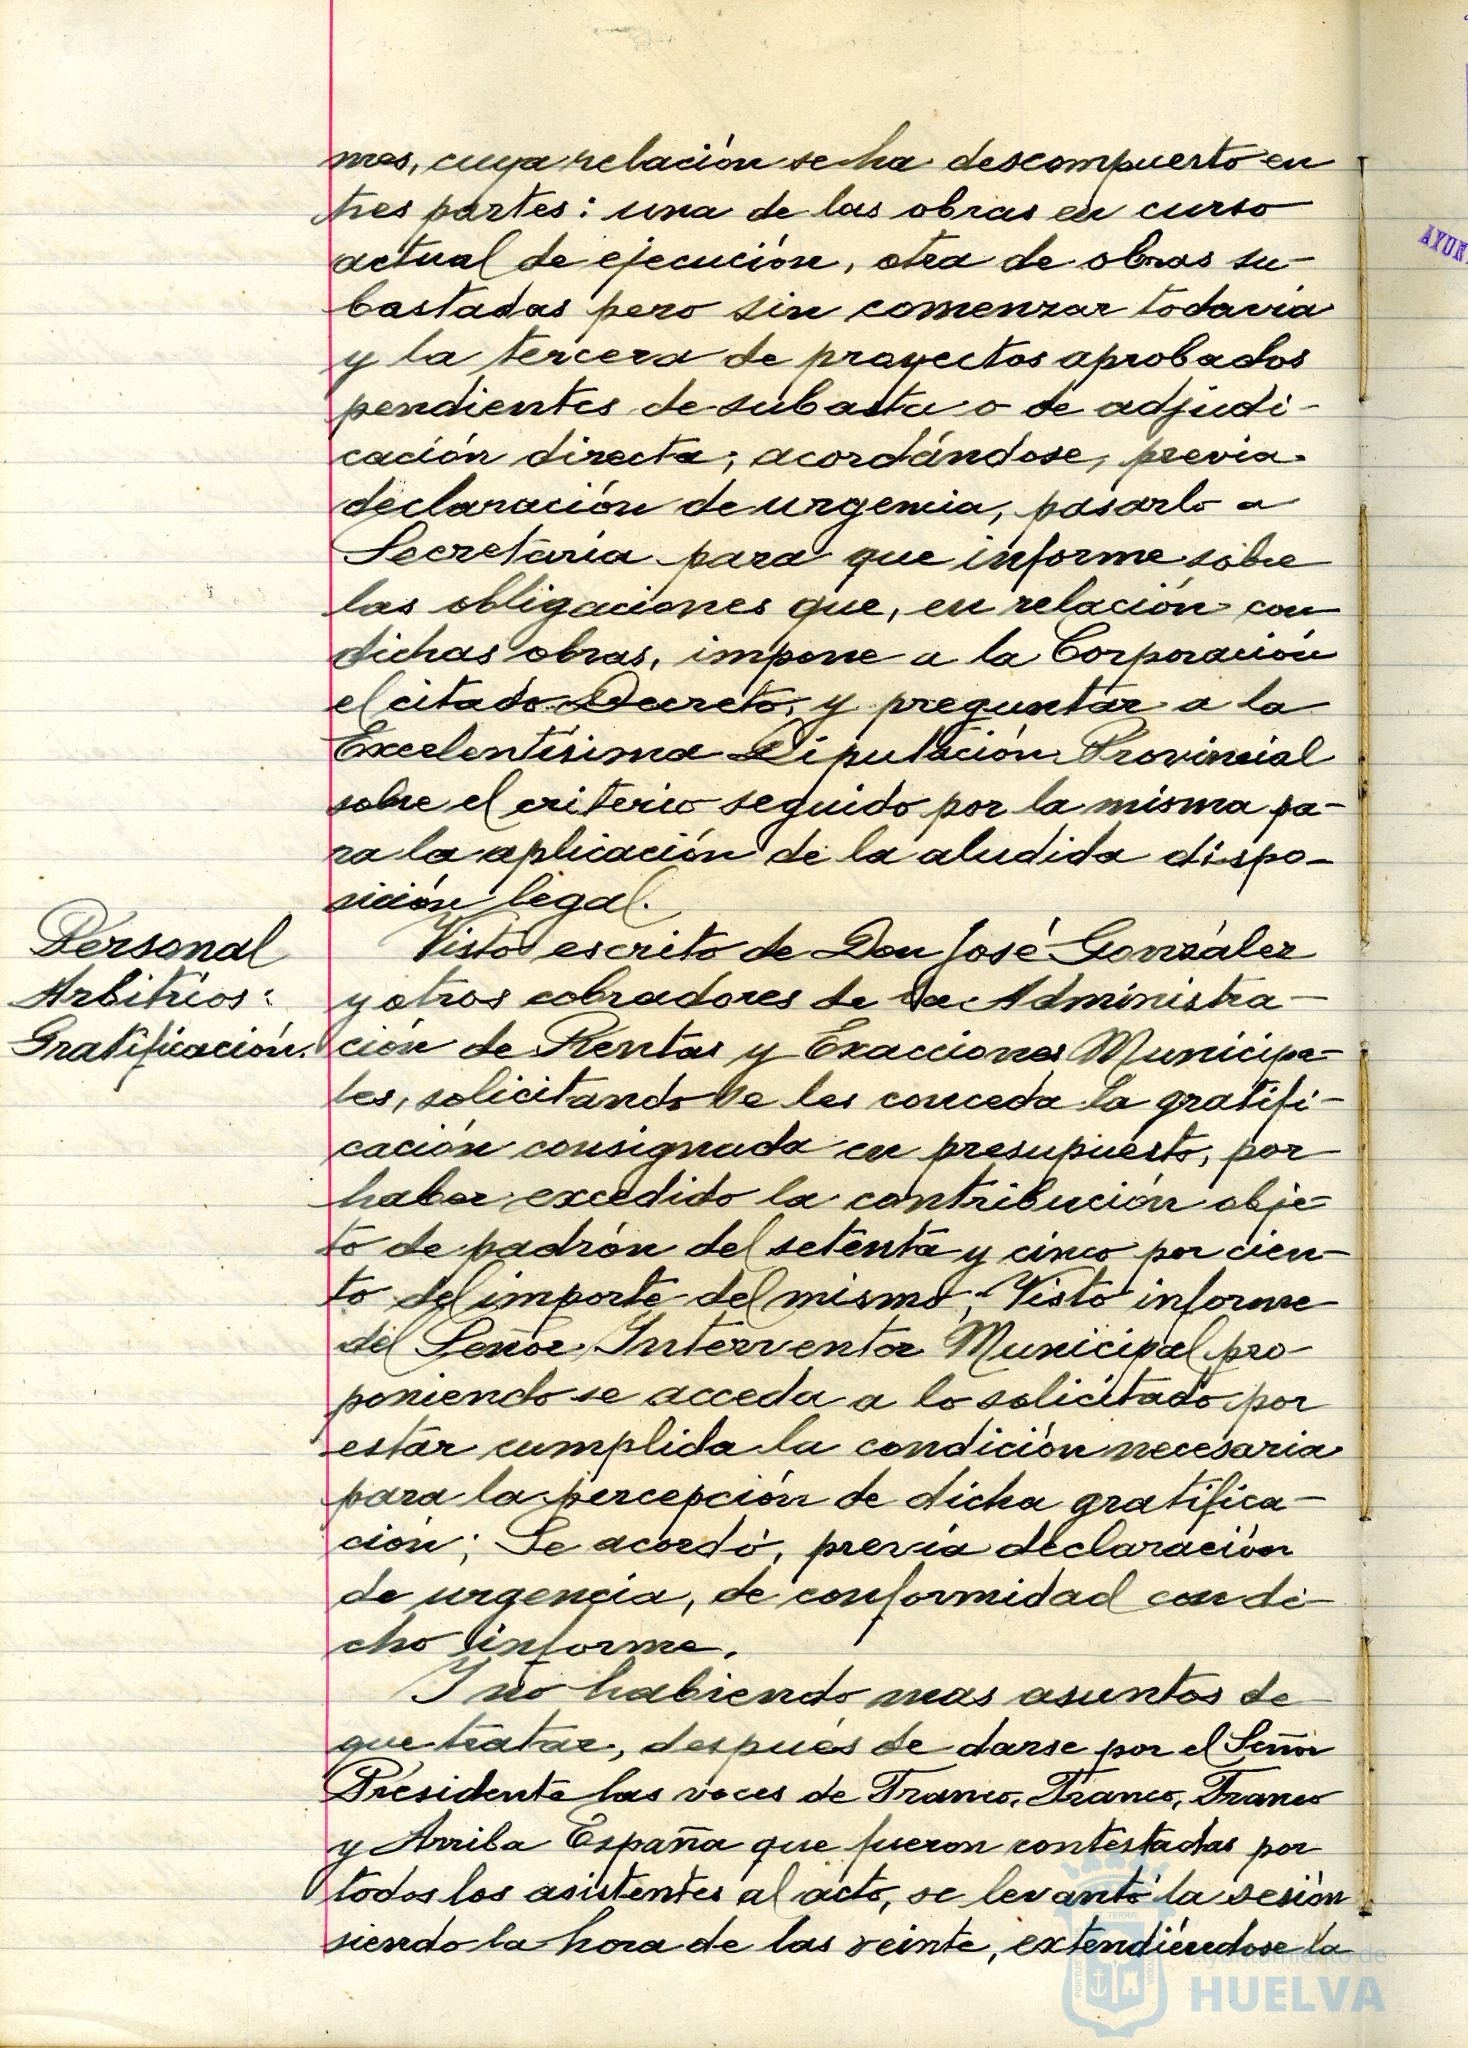 mes, cuya relación se ha descompuesto en
tres partes: una de las obras en curso
actual de ejecución, otra de obras su-
bastadas pero sin comenzar todavía
y la tercera de proyectos aprobados
pendientes de subasta o de adjudi-
cación directa; acordándose, previa
declaración de urgencia, pasarlo a
Secretaría para que informe sobre
las obligaciones que, en relación con
dichas obras, impone a la Corporación
el citado Decreto, y preguntar a la
Excelentísima Diputación Provincial
sobre el criterio seguido por la misma pa-
ra la aplicación de la aludida dispo-
sición legal.
Personal
Arbitrios:
Gratificación.
Visto escrito de Don José González
y otros cobradores de la Administra-
ción de Rentas y Exacciones Municipa-
les, solicitando se les conceda la gratifi-
cación consignada en presupuesto, por
haber excedido la contribución obje-
to de padrón del setenta y cinco por cien-
to del importe del mismo; Visto informe
del Señor Interventor Municipal pro-
poniendo se acceda a lo solicitado por
estar cumplida la condición necesaria
para la percepción de dicha gratifica-
ción; Se acordó, previa declaración
de urgencia, de conformidad con di-
cho informe.
Y no habiendo mas asuntos de
que tratar, después de darse por el Señor
Presidente las voces de Franco, Franco, Franco
y Arriba España que fueron contestadas por
todos los asistentes al acto, se levantó la sesión
siendo la hora de las veinte, extendiéndose la
AYUN
Ayuntamiento de
HUELVA